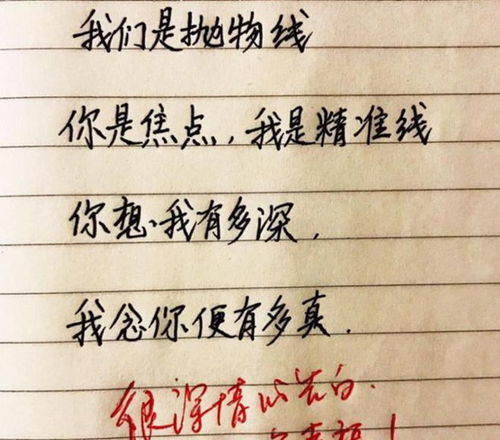 我们是抛物线
你是焦点,我是精准线
你想我有多深,
我念你便有多真.
很深情的告白.